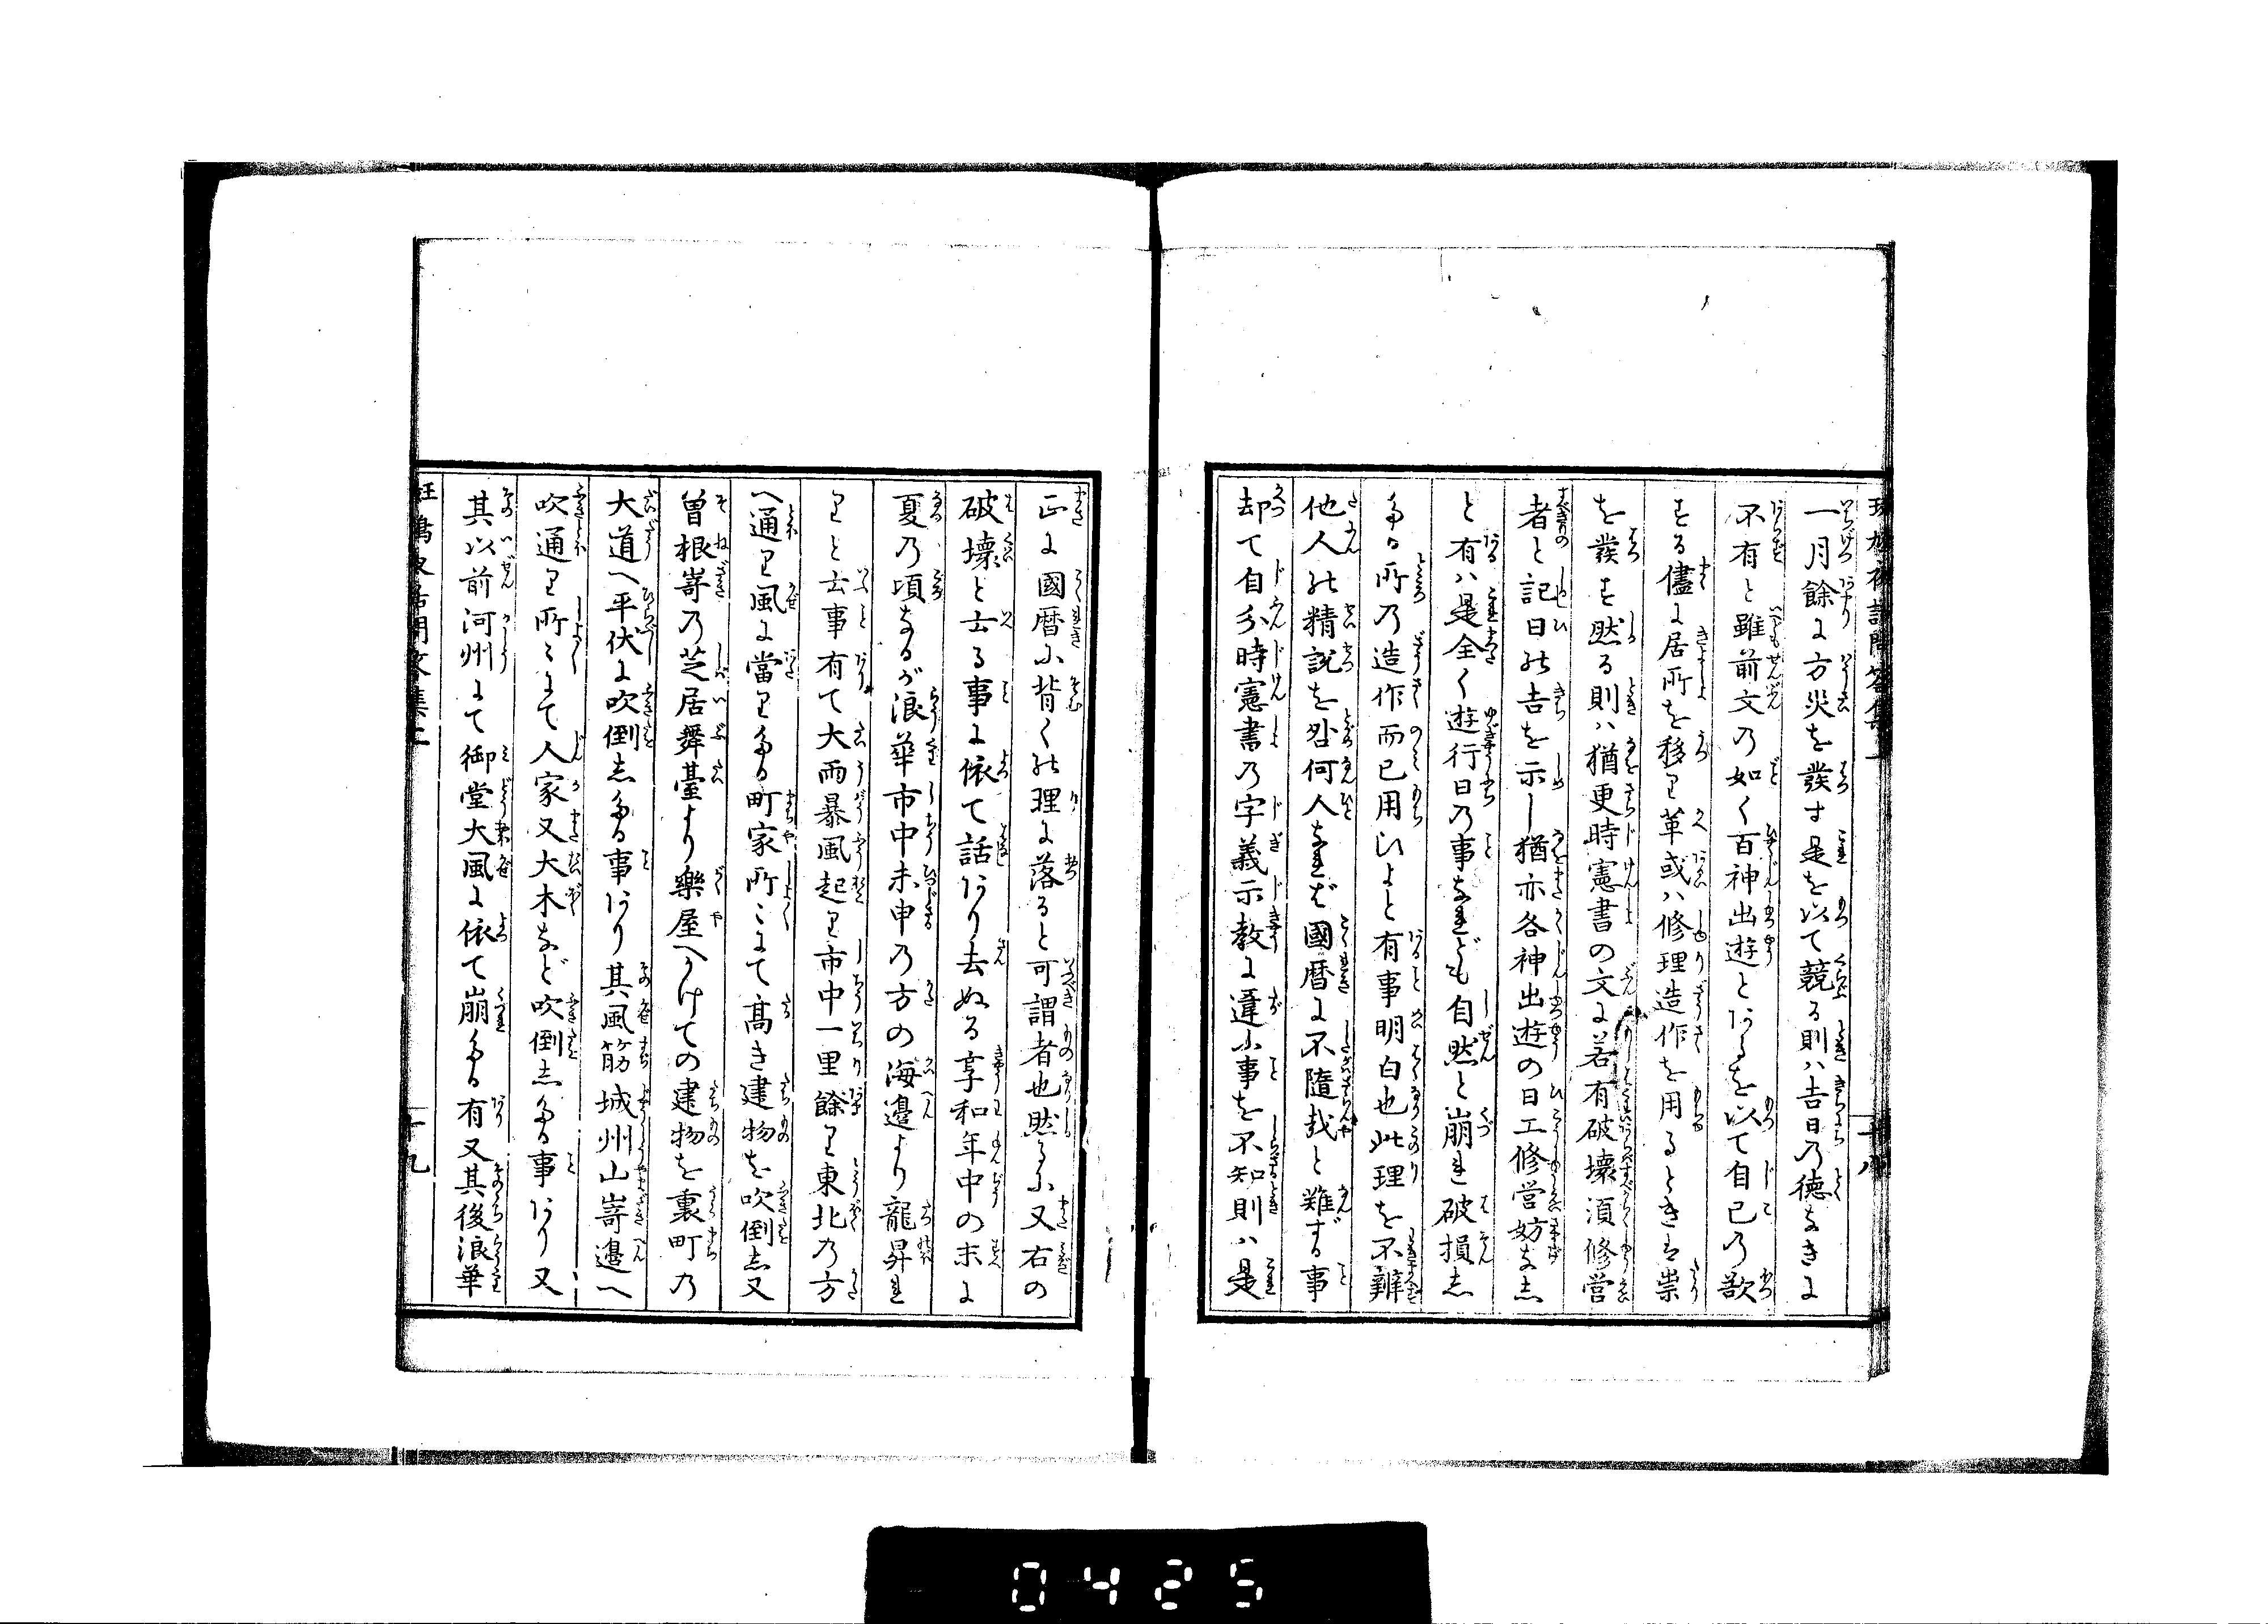 一月餘に方災を發す是を以て競る則ハ吉日乃徳なきに
不有と雖前文乃如く百神出遊とあるを以て自己乃歓
する儘に居所を移り革或ハ修理造作を用るときは祟
を發す然る則ハ猶更時憲書の文に若有破壊須修営
者と記日此吉を示し猶亦各神出遊の日工修営妨なし
と有ハ是全く遊行日乃事なれども自然と崩れ破損し
たる所乃造作而已用ひよと有事明白也此理を不辨
他人此精説を咎何人なれば國暦に不隨哉と難ずる事
却て自分時憲書乃字義示教に違ふ事を不知則ハ是
正に國暦ふ背く此理に落ると可謂者也然るふ又右の
破壊と云る事に依て話あり去ぬる享和年中の末に
夏乃頃なるが浪華市中未申乃方の海邉より龍昇れ
りと云事有て大雨暴風起り市中一里餘り東北乃方
へ通り風に當りたる町家所々にて高き建物を吹倒し又
曽根嵜乃芝居舞臺より樂屋へかけての建物を裏町乃
大道へ平伏に吹倒したる事あり其風筋城州山嵜邉へ
吹通り所々にて人家又大木など吹倒したる事あり又
其以前河州にて御堂大風に依て崩たる有又其後浪華
十九
0425